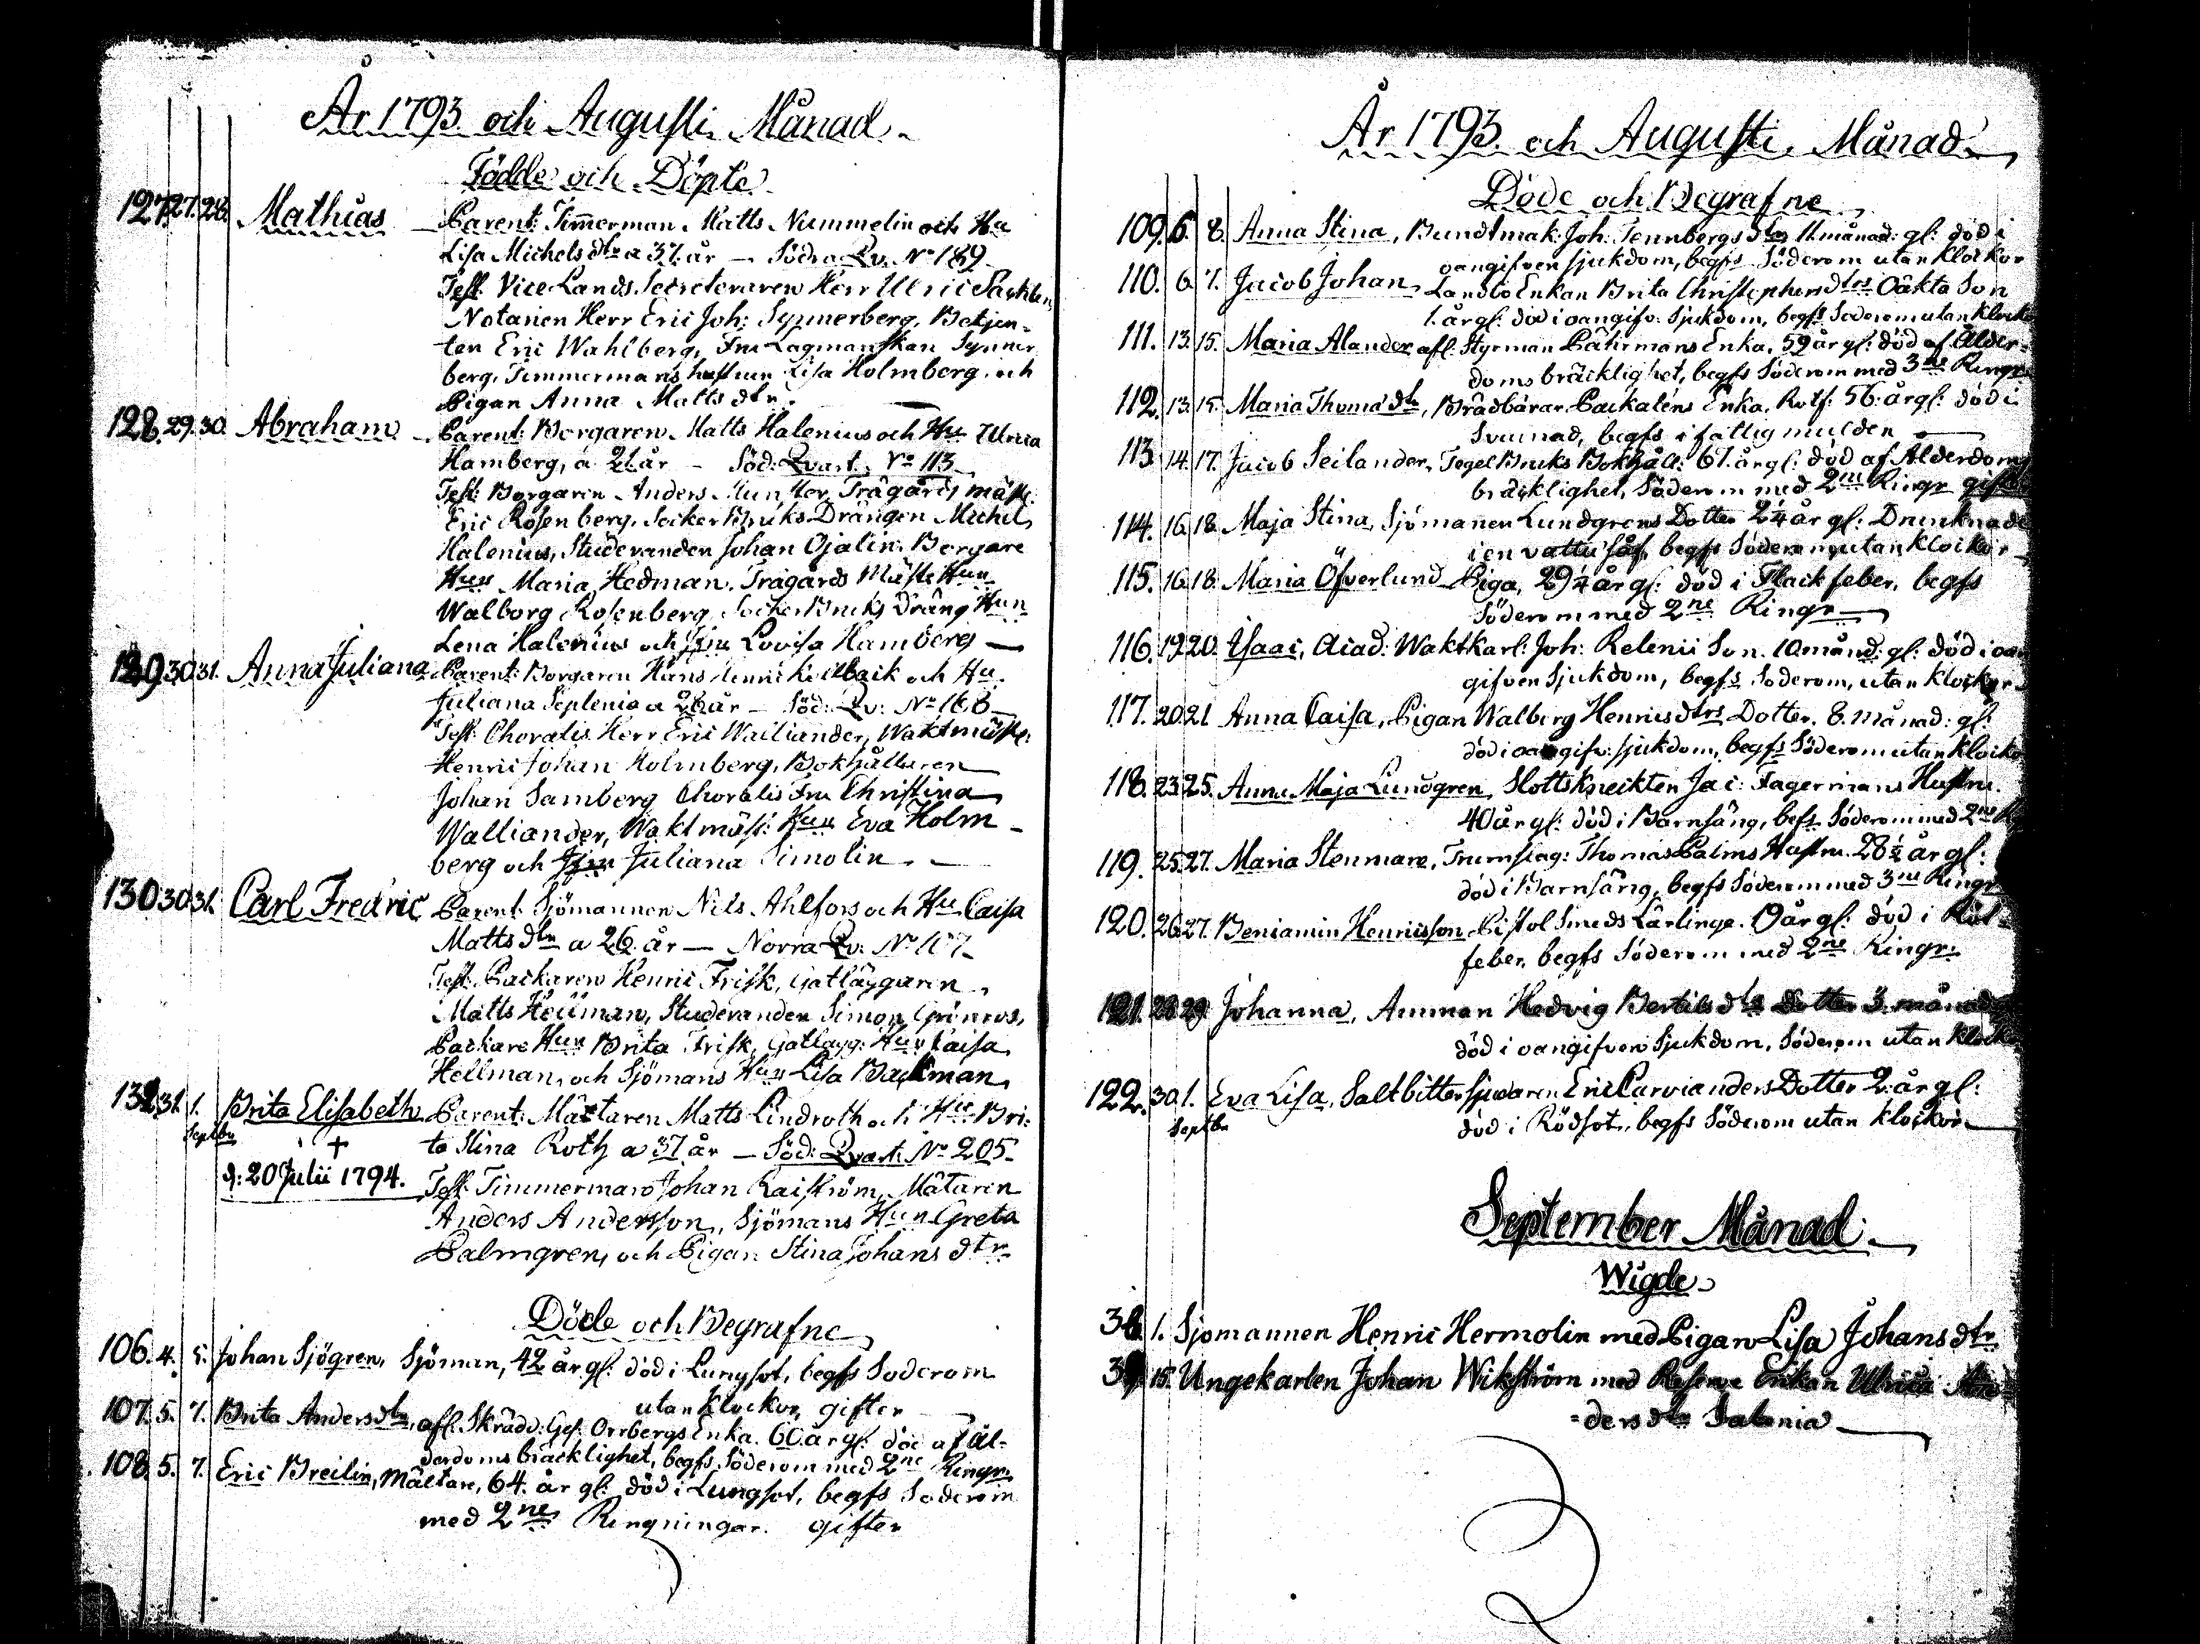 År 1793. och Augusti Månad.
Födde och Döpte
127. 27. 28. Mathias Parent: Timmerman Matts Nummelin och Hu
Lisa Michels dtr a 37. år — Södra Qv. No 189
Test: Vice Lands Secreteraren Herr Ulric
Notarien Herr Eric Joh: Synnerberg, Betjen-
ten Eric Wahlberg, Fru Lagmanskan Synner
berg, Timmermans hustrun Lisa Holmberg. och
Pigan Anna Matts dtr.
128. 29. 30. Abraham Parent: Borgaren Matts Halenius och Hu
Hamberg, a 21. år — Söd: Qvart. No 113
Test: Borgaren Anders Munster, Trägårds mäst:
Eric Rosenberg, Socker Bruks Drängen Michel
Halenius, Studeranden Johan Ojalin. Borgare
Hun Maria Hedman. Trägårds Mäste Hun
Walborg Rosenberg Socker Bruks Dräng Hun
Lena Halenius och Jfru Lovisa Hamberg —
129. 30. 31. Anna Juliana Parent: Borgaren Hans Henric och Hu.
Juliana Seplenia a år — Söd: Qv: No
Test: Choralis Herr Eric Walliander, Waktmäst:
Henric Johan Holmberg, Bokhållaren
Johan Samberg Choralis Fru Christina
Walliander, Waktmäst: Hun Eva Holm-
berg och Jfru Juliana Simolin. —
130 30 31. Carl Fredric Parent: Sjömannen Nils Ahlfors och Hu Caisa
Matts dtr a 26. år — Norra Qv. No 107
Test: Packaren Henric Frisk, Gatläggaren
Matts Hellman, Studeranden Simon Grönros,
Packare Hun Brita Frisk, Gatlägg: Hun Caisa
Hellman, och Sjömans Hun Lisa Backman
131. 31. 1. Brita Elisabeth Parent: Mätaren Matts Lindroth och Hu Bri-
Septbr † ta Stina Roth a 37 år — Söd: Qvart: No 205
d: 20 Julii 1794. Test: Timmerman Johan Kaiström, Mätaren
Anders Andersson, Sjömans Hun Greta
Palmgren, och Pigan Stina Johans dtr
Döde och Begrafne
106. 4. 5. Johan Sjögren, Sjöman, 42 år gl: död i Lungsot, begfs Soderom
utan klockor, gifter
107. 5. 7. Brita Anders dtr, afl. Skrädd: Ges. Orrbergs Enka. 60 år gl: död af ål-
derdoms bräcklighet, begfs Söderom med 2ne Ringn
108. 5. 7. Eric Breilin, Mältare, 64. år gl: död i Lungsot, begfs Soderom
med 2ne Ringningar. gifter
År 1793. och Augusti. Månad
Döde och Begrafne
109. 6. 8. Anna Stina, Bundtmak: Joh: Tennbergs dtr 11. månad: gl: död i
oangifven sjukdom, begfs Söderom utan klockor
110. 6. 7. Jacob Johan, Enkan Brita Christophers dtrs Oäkta Son
1. år gl: död i oangifv: Sjukdom, begfs Soderom utan klocko
111. 13. 15. Maria Alander afl: Styrman Påhrmans Enka, 59 år gl: död af Ålder-
doms bräcklighet, begfs Söderom med 3ne Ringn
112. 13. 15. Maria Thomæ dtr, Brädbärar. Packaléns Enka, Rotf: 56. år gl: död i
Svulnad, begfs i fattig mulden
113. 14. 17. Jacob Seilander, Tegel Bruks Bokhåll: 61. år gl: död af Ålderdoms
bräcklighet, Söderom med 2ne Ringn gifter
114. 16. 18. Maja Stina, Sjömannen Lundgrens Dotter 2¼ år gl: Drunknade
i en vattu såf, begfs Söderom utan klockor
115. 16. 18. Maria Öfverlund Piga, 29¼ år gl: död i Flack feber, begfs
Söderom med 2ne Ringn
116. 19. 20. Isaac, Acad: Waktkarl: Joh: Relenii Son. 10 månd: gl: död i oan
gifven Sjukdom, begfs Soderom, utan klockor
117. 20. 21 Anna Caisa, Pigan Walborg Henrics dtrs Dotter. 8. månad: gl:
död i oangifv: sjukdom, begfs Söderom utan klocko
118. 23. 25. Anna Maja Lundgren, Slottsknekten Jac: Fagermans Hustru.
40 år gl: död i Barnsäng, befs Söderom med 2ne
119. 25. 27. Maria Stenmare, Trumslag: Thomas Palms Hustru. 28½ år gl:
död i Barnsäng, begfs Söderom med 3ne Ringn
120. 26. 27. Beniamin Henricsson Pistol Smeds Lärlinge. 19 år gl: död i Röt-
feber, begfs Söderom med 2ne Ringn:
121. 28. 29. Johanna, Amman Hedvig Bertils dtrs Dotter 3. månad
död i oangifven Sjukdom, Söderom utan klock
122. 30. 1. Eva Lisa, Saltbitter Sjudaren Eric Parvianders Dotter 2. år gl:
Septbr död i Rödsot, begfs Söderom utan klockor
September Månad.
Wigde
38. 1. Sjomannen Henric Hermolin med Pigan Lisa Johans dtr
39. 15. Ungekarlen Johan Wikström med Enkan Ulrica An-
ders dtr Salonia